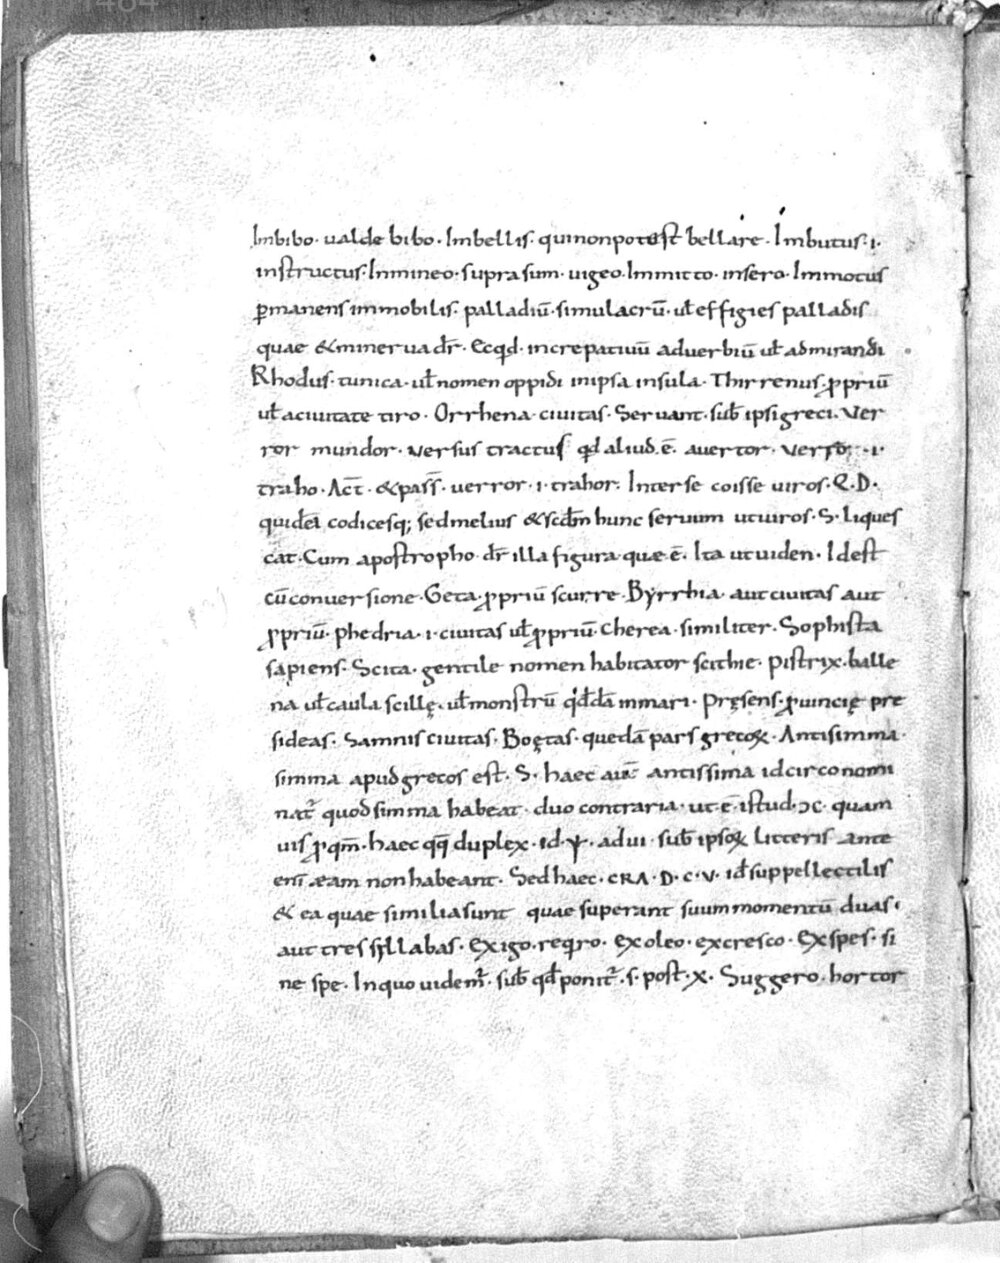 Imbibo · ualde bibo · Imbellis · qui non potest bellare · Imbutus · i ·
instructus · Inmineo · supra sum · uigeo · Immitto · insero · Immotus
p̄manens immobilis · palladiū · simulacrū · ul̄ effigies palladis
quae & minerua dr̄ · Ecqd̄ · increpatiuū aduerbiū ul̄ admirandi
Rhodus · tunica · ul̄ nomen oppidi in ipsa insula · Thirrenus · ꝓpriū
ul̄ a ciuitate tiro · Orrhena · ciuitas · Seruant · sub̄ ipsi greci · Ver
ror mundor · versus tractus qd̄ aliud ē · auertor · verro · i ·
traho · Act̄ · & pass̄ · uerror · i · trahor · Inter se coisse uiros · Q · D ·
quidā codicesq; sed melius & scdm̄ hunc seruum ut uiros · S · liques
cat · Cum apostropho dr̄ illa figura que ē · Ita ut uiden · Idest
cū conuersione · Geta · ꝓpriū scurre · Byrrhia · aut ciuitas aut
ꝓpriū · phedria · i · ciuitas ul̄ ꝓpriū · Cherea · similiter · Sophista
sapiens · Scita · gentile nomen habitator scithie · pistrix · balle
na ul̄ caula scillę · ul̄ monstrū qd̄dā in mari · Pręsens · ꝓuincię pre
sideas · Samnis ciuitas · Boętas · quedā pars grecoꝝ · Antisimma ·
simma apud grecos est · S · haec antissima idcirco nomi
nat᷑ quod simma habeat · duo contraria · ut ē istud · ɔc · quam
uis ꝓ qm̄ · haec qq̄ duplex · id · ψ · adui · sub̄ ipsoꝝ litteris ante
eni᷑ æam non habeant · Sed haec · CRA · D · C · V · id̄ suppellectilis
& ea quae similia sunt quae superant suum momentū duas ·
aut tres syllabas · Exigo · reqro · Exoleo · excresco · Exspes · si
ne spe · In quo uidem᷑ · sub̄ qd̄ ponit᷑ · s · post · x · Suggero · hortor